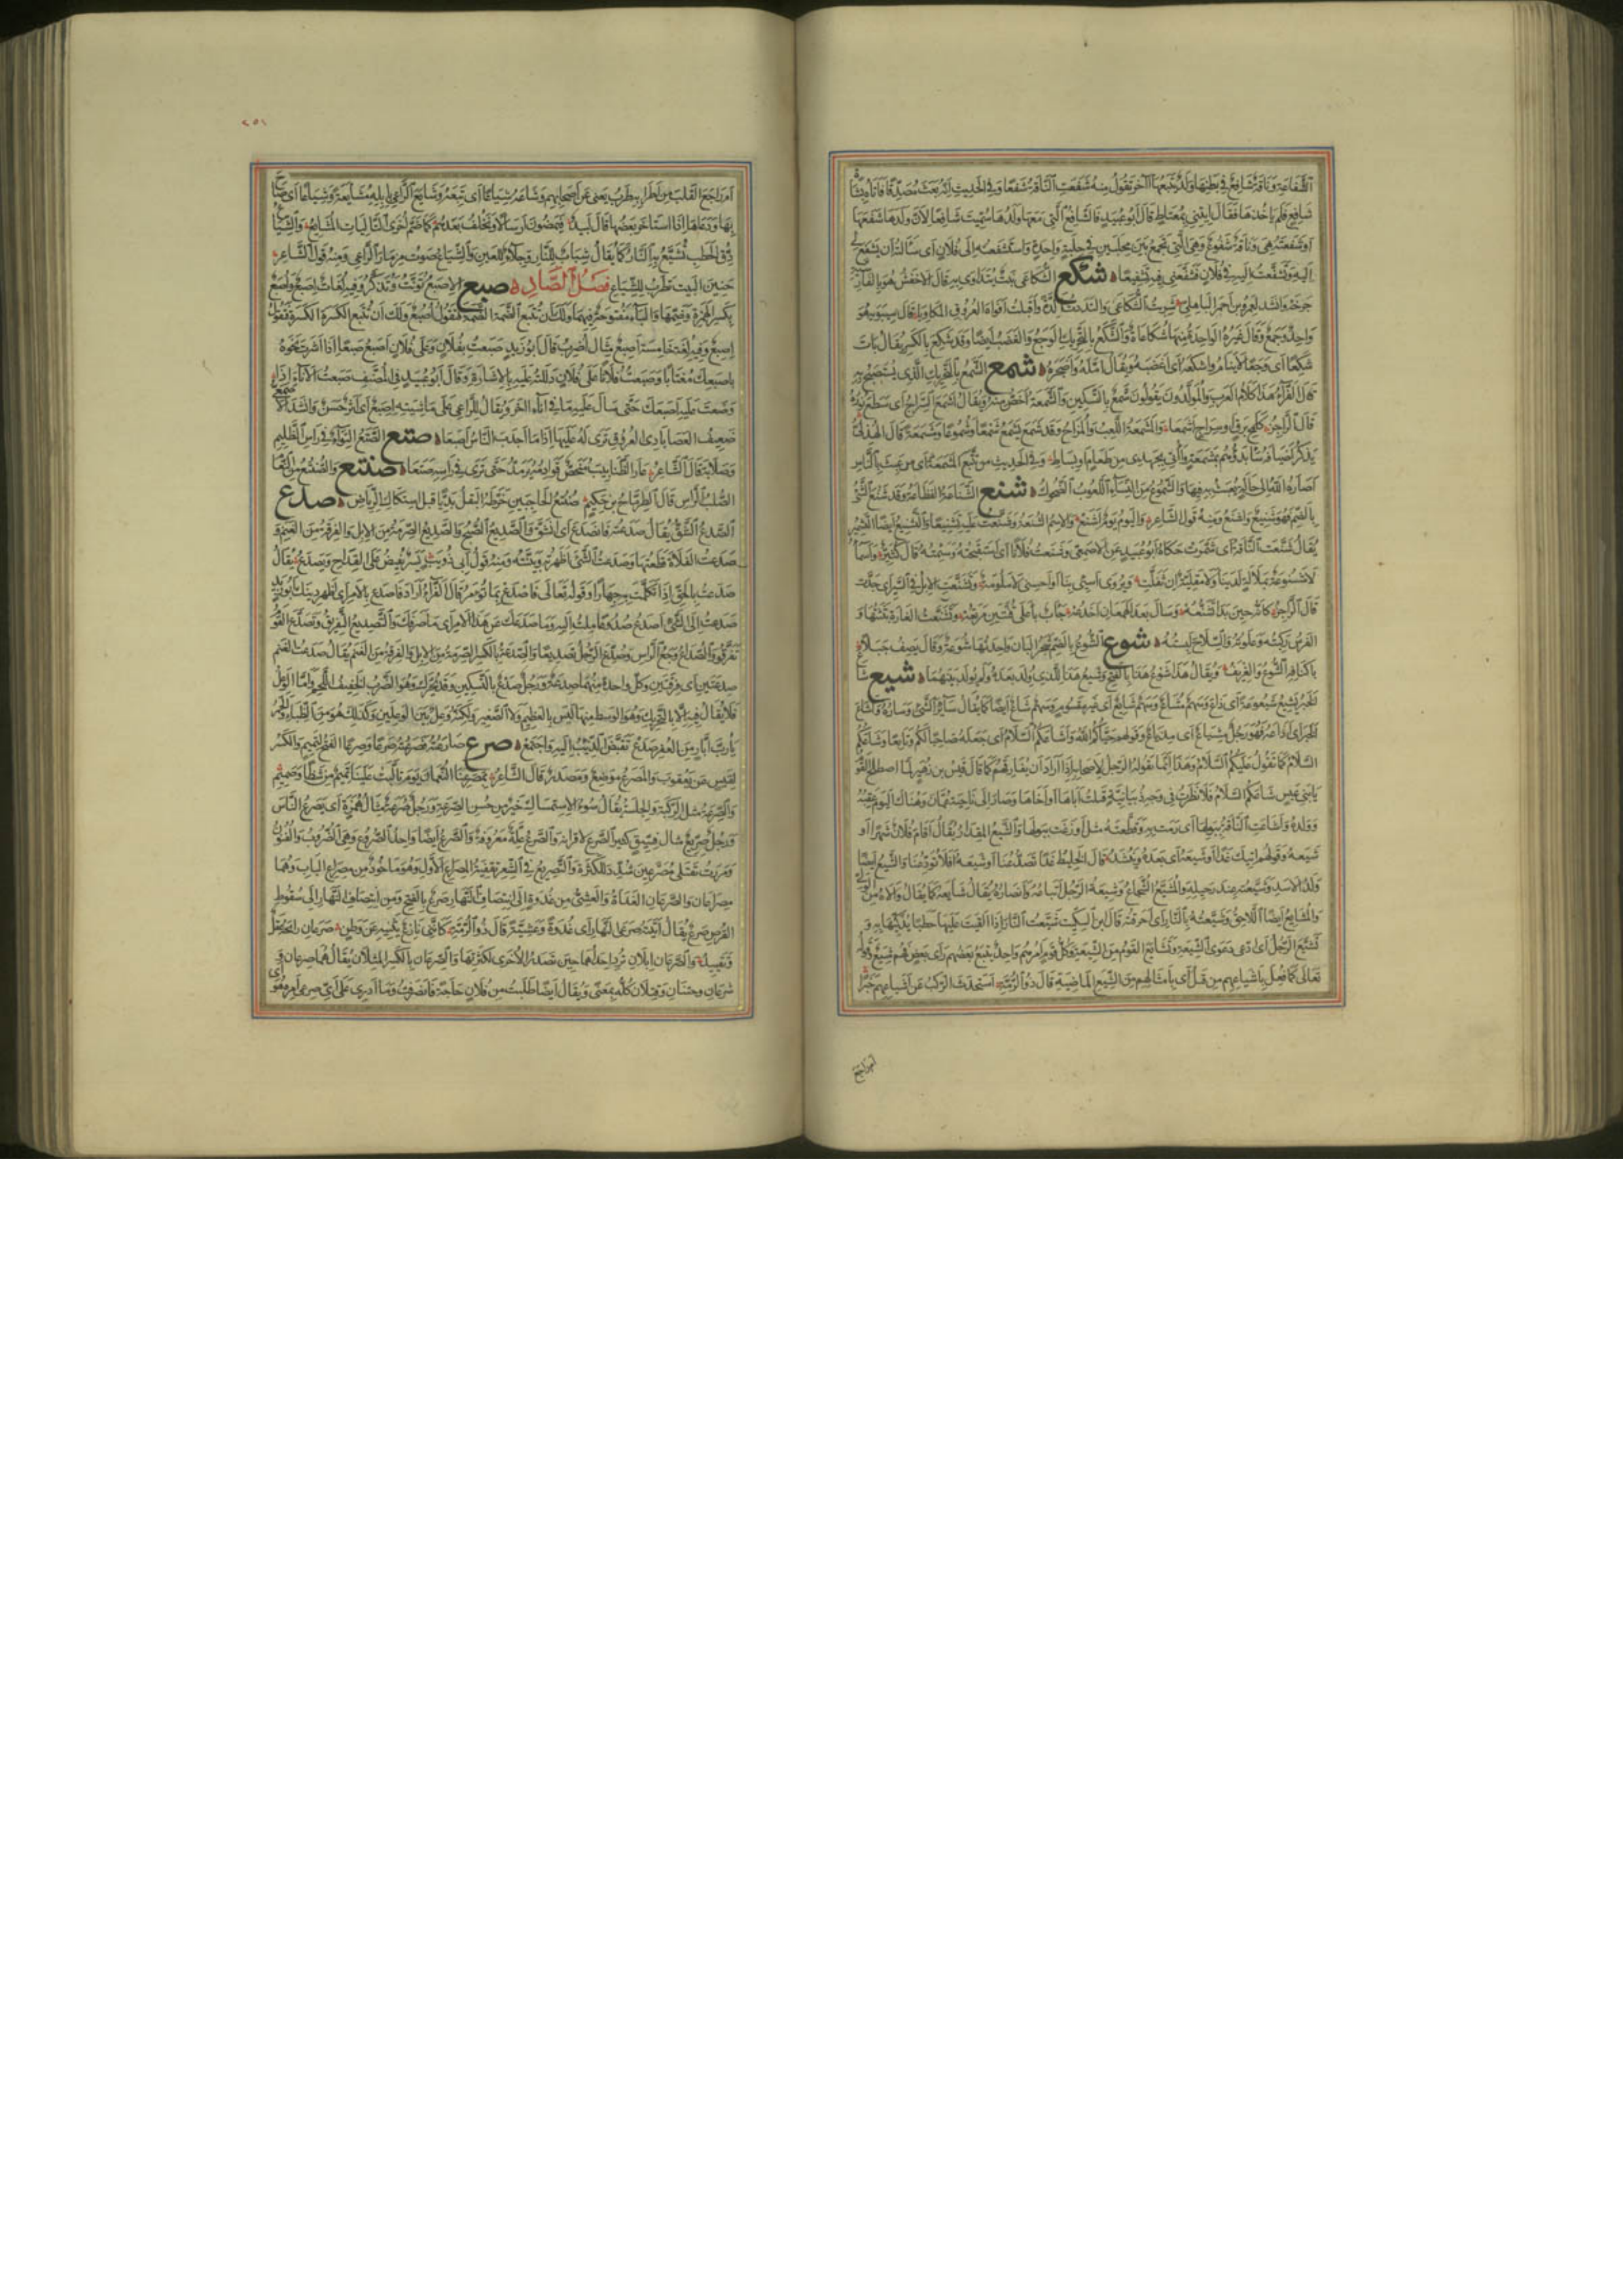 الشفاعة وناقة شافع في بطنها ولد يتبعها آخر تقول منه شفعت الناقة شفعا وفي الحديث انه بعث مصدقا فاتاه بشاة
شافع فلم ياخذها فقال ايتني بمعتاط قال ابو عبيد فالشافع التي معها ولدها سميت شافعا لان ولدها شفعها
او شفعته هي وناقة شفوع وهي التي تجمع بين محلبين في حلبة واحدة واستشفعه الى فلان اي سأله ان يشفع لي
اليه وتشفعت اليه في فلان فشفعني فيه تشفيعا شكع الشكاعى نبت يتداوى به قال الاخفش هو بالفارسية
جرخه وانشد لعمرو بن احمر الباهلي شربت الشكاعى والتددت الدة واقبلت افواه العروق المكاويا قال سيبويه هو
واحد وجمع وقال غيره الواحدة منها شكاعاة والشكع بالتحريك الوجع والغضب ايضا وقد شكع بالكسر يقال بات
شكعا اي وجعا لا ينام واشكعه اي اغضبه ويقال امله واضجره شمع الشمع بالتحريك الذي يستصبح به
قال الفراء هذا كلام العرب والمولدون يقولون شمع بالتسكين والشمعة اخص منه ويقال اشمع السراج اي سطع نوره
قال الراجز كلمح برق او سراج اشمعا والشمعة اللعب والمزاح وقد شمع يشمع شمعا وشموعا ومشمعة قال الهذلي
يذكر اضيافه سأبدؤهم بمشمعة وأثني بجهدي من طعام او بساط وفي الحديث من تتبع المشمعة اي من عبث بالناس
اصاره الله الى حالة يعبث به فيها والشموع من النساء اللعوب الضحوك شنع الشناعة الفظاعة وقد شنع الشئ
بالضم فهو شنيع واشنع ومنه قول الشاعر واليوم يوم اشنع والاسم الشنعة وشنعت عليه تشنيعا والتشنيع ايضا التشمير
يقال شنعت الناقة اي شمرت حكاه ابو عبيد عن الاصمعي وشنعت فلانا اي استقبحته وسئمته قال كثير واسماء
لا مشنوعة بملالة لدينا ولا مقلية ان تقلت ويروى اسيئي بنا او احسني لا ملومة وتشنعت الابل في السير اي جدت
قال الراجز كانه حين بدا تشنعه وسال بعد الهمعان اخدعه جاب باعلى قنتين مرتعه وتشنعت الغارة بثثتها و
الفرس ركبته وعلوته والسلاح لبسته شوع الشوع بالضم شجر البان واحدتها شوعة وقال يصف جبلا
باكناف الشوع والغريف ويقال هذا شوع هذا بالفتح وشيع هذا للذي ولد بعده ولم يولد بينهما شيع شاع
الخبر يشيع شيعوعة اي ذاع وسهم مشاع وسهم شائع اي غير مقسوم وسهم شاع ايضا كما يقال سائر الشئ وساره واشاع
الخبر اي اذاعه فهو رجل مشياع اي مذياع وقولهم حياكم الله واشاعكم السلام اي جعله صاحبا لكم وتابعا وشاعكم
السلام كما تقول عليكم السلام وهذا انما يقوله الرجل لاصحابه اذا اراد ان يفارقهم كما قال قيس بن زهير لما اصطلح القوم
يا بني عبس شاعكم السلام فلا نظرت في وجه ذبيانية قتلت اباها او اخاها وصار الى ناحية عمان وهناك اليوم عقبه
وولده واشاعت الناقة ببولها اي رمت به وقطعته مثل اوزغت ببولها والشيع المقدار يقال اقام فلان شهرا او
شيعه وقولهم آتيك غدا او شيعه اي بعده وينشد قال الخليط غدا تصدعنا او شيعه افلا تودعنا والشيع ايضا
ولد الاسد وشيعته عند رحيله والمشيع الشجاع وشيعة الرجل اتباعه وانصاره يقال شايعه كما يقال والاه من الولي
والمشايع ايضا اللاحق وشيعته بالنار اي احرقته قال ابن السكيت شيعت النار اذا القيت عليها حطبا يذكيها به و
تشيع الرجل اي ادعى دعوى الشيعة وتشايع القوم من الشيعة وكل قوم امرهم واحد يتبع بعضهم راي بعض فهم شيع وقوله
تعالى كما فعل باشياعهم من قبل اي بامثالهم من الشيع الماضية قال ذو الرمة استحدث الركب عن اشياعهم خبرا
ام راجع
٢٥١
ام راجع القلب من اطرابه طرب يعني عن اصحابهم وشاعه شياعا اي تبعه وشايع الراعي بابله مشايعة وشياعا اي صاح
بها ودعاها اذا استاخر بعضها قال لبيد فيمضون ارسالا ونخلف بعدهم كما ضم اخرى التاليات المشايع والشياع
دق الحطب تشيع به النار كما يقال شباب للنار وجلاء للعين والشياع صوت مزمار الراعي ومنه قول الشاعر
حنين النيب تطرب للشياع فصل الصاد صبع الاصبع تؤنث وتذكر وفيه لغات اصبع واصبع
بكسر الهمزة وضمها والباء مفتوحة فيهما ولك ان تتبع الضمة الضمة فتقول اصبع ولك ان تتبع الكسرة الكسرة فتقول
اصبع وفيه لغة خامسة اصبع مثال اضرب قال ابو زيد صبعت بفلان وعلى فلان اصبع صبعا اذا اشرت نحوه
باصبعك مغتابا وصبعت فلانا على فلان دللته عليه بالاشارة وقال ابو عبيد في المصنف صبعت الاناء اذا
وضعت عليه اصبعك حتى سال عليه ما في اناء آخر ويقال للراعي على ماشيته اصبع اي اثر حسن وانشد الاصمعي
ضعيف العصا بادي العروق ترى له عليها اذا ما اجدب الناس اصبعا صتع الصتع التواء في راس الظليم
وصلابة قال الشاعر عاري الظنابيب منحص قوادمه يرمد حتى ترى في راسه صتعا صنتع والصنتع من النعام
الصلب الراس قال الطرماح بن حكيم صنتع الحاجبين خرطه البقل بديا قبل استكاك الرياض صدع
الصدع الشق يقال صدعته فانصدع اي انشق والصديع الصبح والصديع الصرمة من الابل والفرقة من الغنم و
صدعت الفلاة قطعتها وصدعت الشئ اظهرته وبينته ومنه قول ابي ذؤيب يسر يفيض على القداح ويصدع يقال
صدعت بالحق اذا تكلمت به جهارا وقوله تعالى فاصدع بما تؤمر قال الفراء اراد فاصدع بالامر اي اظهر دينك ابو زيد
صدعت الى الشئ اصدع صدوعا ملت اليه وما صدعك عن هذا الامر اي ما صرفك والتصديع التفريق وتصدع القوم
تفرقوا والصداع وجع الراس وصدع الرجل تصديعا والصدعة بالكسر الصرمة من الابل والفرقة من الغنم يقال صدعت الغنم
صدعتين اي فرقتين وكل واحدة منهما صدعة ورجل صدع بالتسكين وقد يحرك وهو الضرب الخفيف اللحم واما الوعل
فلا يقال فيه الا بالتحريك وهو الوسط منها ليس بالعظيم ولا الصغير ولكنه وعل بين الوعلين وكذلك هو من الظباء والحمر
يا رب اباز من العفر صدع تقبض الذئب اليه واجتمع صرع صارعته فصرعته صرعا وصرعا الفتح لتميم والكسر
لقيس عن يعقوب والمصرع موضع ومصدر قال الشاعر بمصرعنا النعمان يوم تالبت علينا تميم من شظا وصميم
والصرعة مثل الركبة والجلسة يقال سوء الاستمساك خير من حسن الصرعة ورجل صرعة مثال همزة اي يصرع الناس
ورجل صريع مثال فسيق كثير الصرع لاقرانه والصرع علة معروفة والصرع ايضا واحد الصروع وهي الضروب والفنون
ومررت بقتلى مصرعين شدد للكثرة والتصريع في الشعر تقفية المصراع الاول وهو ماخوذ من مصراع الباب وهما
مصراعان والصرعان الغداة والعشي من غدوة الى انتصاف النهار صرع بالفتح ومن انتصاف النهار الى سقوط
القرص صرع يقال اتيته صرعي النهار اي غدوة وعشية قال ذو الرمة كانني نازع يثنيه عن وطن صرعان رائحة عقل
وتقييد والصرعان ابلان ترد احداهما حين تصدر الاخرى لكثرتها والصرعان بالكسر المثلان يقال هما صرعان و
شرعان وحتنان وقتلان كله بمعنى ويقال ايضا طلبت من فلان حاجة فانصرفت وما ادري على اي صرعي امره هو